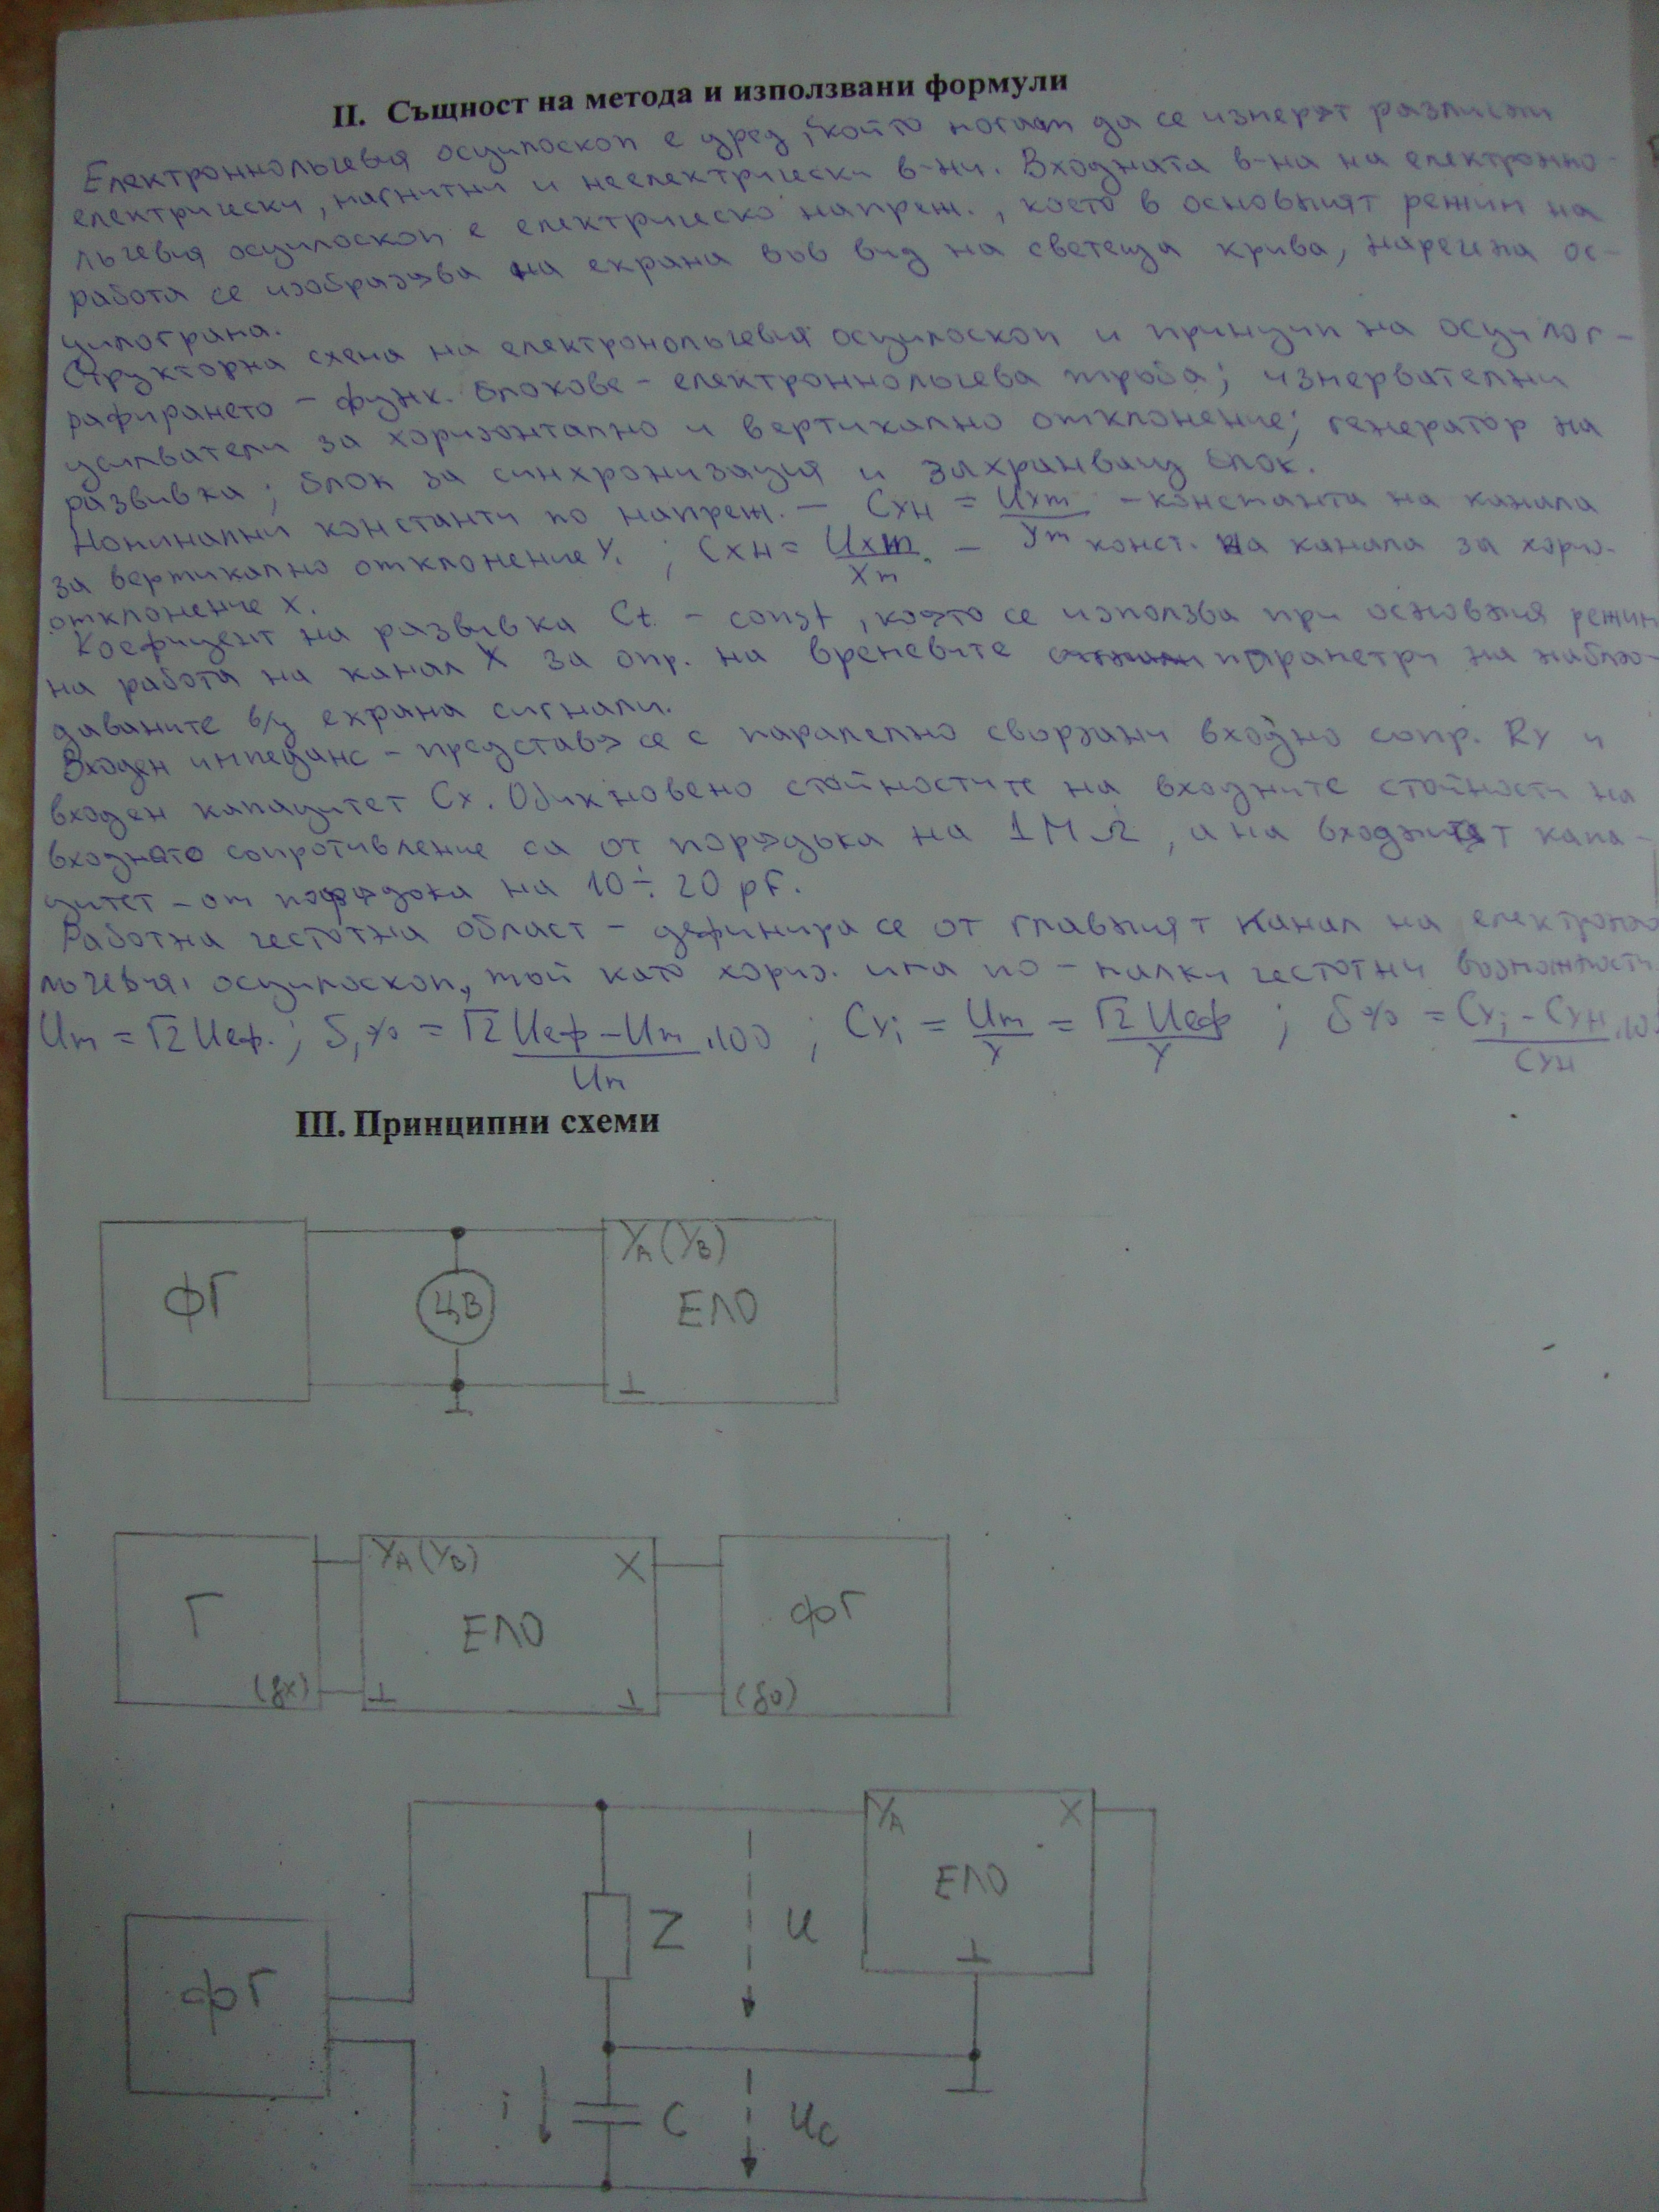 II. Същност на метода и използвани формули
Електроннолъчевия осцилоскоп е уред, с който могат да се измерят различни
електрически, магнитни и неелектрически в-ни. Входната в-на на електронно-
лъчевия осцилоскоп е електрическо напреж., което в основният режим на
работа се изобразява на екрана във вид на светеща крива, наречена ос-
цилограма.
Структорна схема на електронолъчевия осцилоскоп и принцип на осцилог-
рафирането - функ. блокове - електроннолъчева тръба; измервателни
усилватели за хоризонтално и вертикално отклонение; генератор на
развивка; блок за синхронизация и захранващ блок.
Номинални константи по напреж. - CxH = Uxm / Ym - константа на канала
за вертикално отклонение Y. ; CxH = Uxm / Xm - конст. на канала за хориз.
отклонение X.
Коефициент на развивка Ct - const, която се използва при основния режим
на работа на канал X за опр. на времевите параметри на наблю-
даваните в/у екрана сигнали.
Входен импеданс - представя се с паралелно свързани входно сопр. Ry и
входен капацитет Cx. Обикновено стойностите на входните стойности на
входното сопротивление са от порядъка на 1MΩ, а на входният капа-
цитет - от порядъка на 10÷20 pF.
Работна честотна област - дефинира се от главният канал на електроно
лъчевия осцилоскоп, той като хориз. има по-малки честотни возможности
Um = √2 Uеф. ; δ,% = √2 Uеф - Um / Um .100 ; Cyi = Um / Y = √2 Uеф / Y ; δ% = Cyi - CyH / CyH .10
III. Принципни схеми
YA (YB)
ФГ
ЦВ
ЕЛО
⊥
YA (YB)
X
Г
ЕЛО
ФГ
(fx)
⊥
⊥
(f0)
YA
X
ЕЛО
Z
U
⊥
ФГ
i
C
Uc